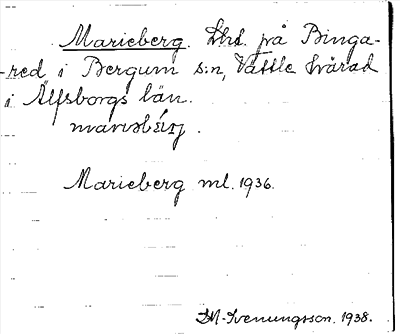 Marieberg. Lht. på Binga-
red i Bergum s:n, Vättle härad
i Älfsborgs län.
Marieberg ml. 1936.
Ivenungsson. 1938.